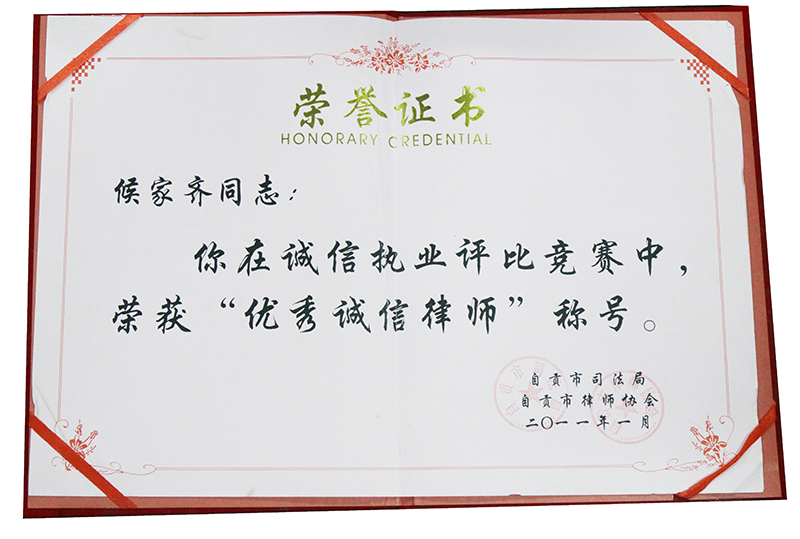 荣誉证书
HONORARY CREDENTIAL
候家齐同志：
你在诚信执业评比竞赛中，
荣获“优秀诚信律师”称号。
自贡市司法局
自贡市律师协会
二〇一一年一月